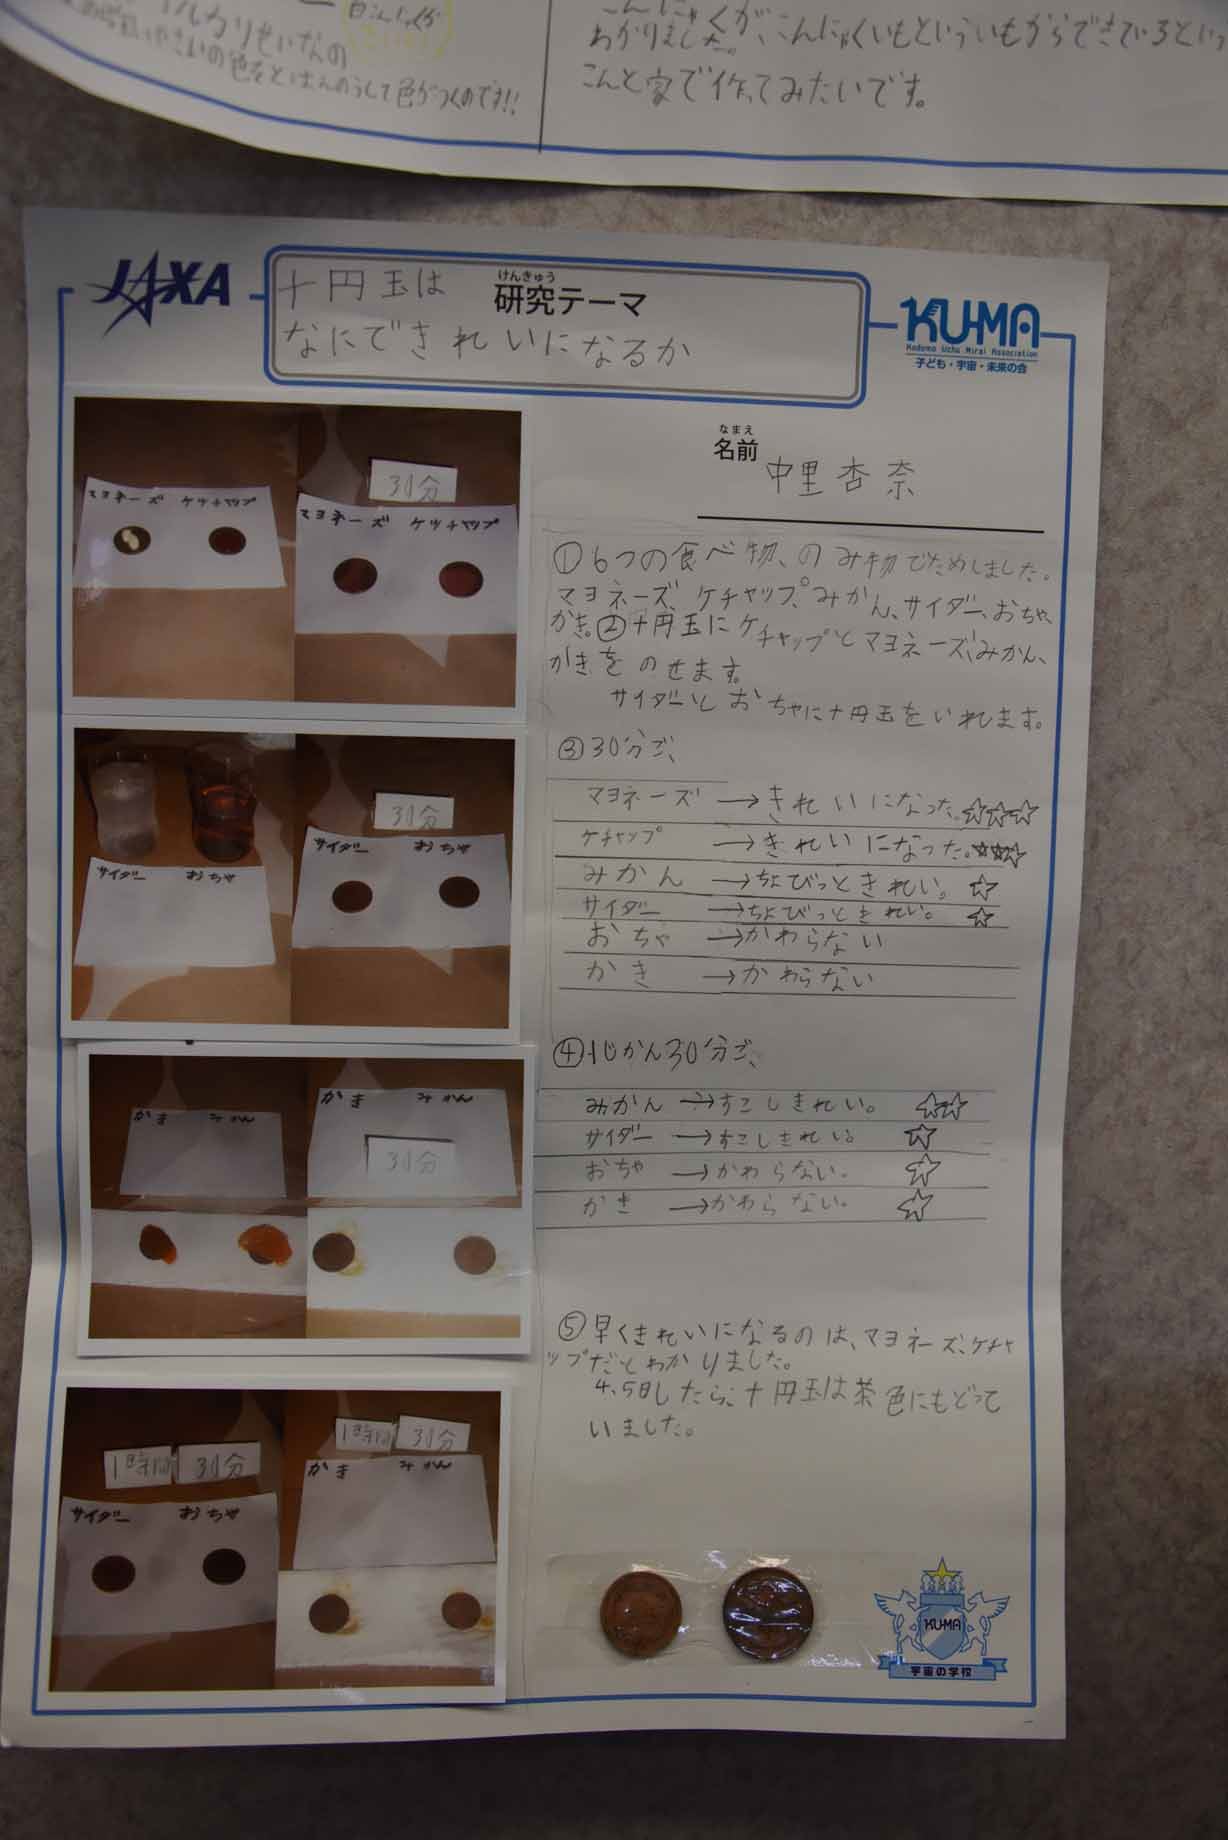 白こんにゃくが
せいなの
やさいの色そとはんのうして色がつくのです!!
わかりました。こんにゃくいもといういもからできているとい
こんど家で作ってみたいです。
JAXA
十円玉は
けんきゅう
研究テーマ
なにできれいになるか
KU-MA
Kodomo Uchu Mirai Association
子ども・宇宙・未来の会
なまえ
名前
中里杏奈
①6つの食べ物、のみ物でためしました。
マヨネーズ、ケチャップ、みかん、サイダー、おちゃ、
かき。②十円玉にケチャップとマヨネーズ、みかん、
かきをのせます。
サイダーとおちゃに十円玉をいれます。
③30分ご、
マヨネーズ →きれいになった。☆☆☆
ケチャップ →きれいになった。☆☆☆
みかん →ちょびっときれい。☆
サイダー →ちょびっときれい。☆
おちゃ →かわらない
かき →かわらない
④1じかん30分ご、
みかん →すこしきれい。☆☆
サイダー →すこしきれい。☆
おちゃ →かわらない。☆
かき →かわらない。☆
⑤早くきれいになるのは、マヨネーズ、ケチャ
ップだとわかりました。
4、5日したら、十円玉は茶色にもどって
いました。
マヨネーズ ケチャップ
30分
マヨネーズ ケチャップ
サイダー おちゃ
30分
サイダー おちゃ
かき みかん
かき みかん
30分
1時間 30分
サイダー おちゃ
1時間 30分
かき みかん
KU-MA
宇宙の学校